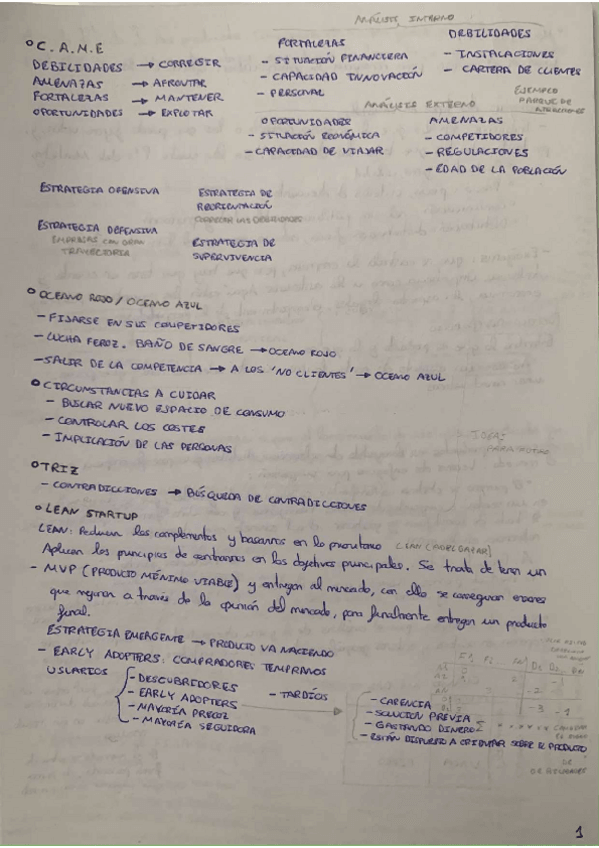 ANÁLISIS INTERNO
° C.A.M.E
DEBILIDADES → CORREGIR
AMENAZAS → AFRONTAR
FORTALEZAS → MANTENER
OPORTUNIDADES → EXPLOTAR
FORTALEZAS
- SITUACIÓN FINANCIERA
- CAPACIDAD INNOVACIÓN
- PERSONAL
DEBILIDADES
- INSTALACIONES
- CARTERA DE CLIENTES
EJEMPLO
PARQUE DE
ATRACCIONES
ANÁLISIS EXTERNO
OPORTUNIDADES
- SITUACIÓN ECONÓMICA
- CAPACIDAD DE VIAJAR
AMENAZAS
- COMPETIDORES
- REGULACIONES
- EDAD DE LA POBLACIÓN
ESTRATEGIA OFENSIVA
ESTRATEGIA DE
REORIENTACIÓN
CORREGIR LAS DEBILIDADES
ESTRATEGIA DEFENSIVA
EMPRESAS CON GRAN
TRAYECTORIA
ESTRATEGIA DE
SUPERVIVENCIA
° OCEANO ROJO / OCEANO AZUL
- FIJARSE EN SUS COMPETIDORES
- LUCHA FEROZ. BAÑO DE SANGRE → OCEANO ROJO
- SALIR DE LA COMPETENCIA → A LOS 'NO CLIENTES' → OCEANO AZUL
° CIRCUNSTANCIAS A CUIDAR
- BUSCAR NUEVO ESPACIO DE CONSUMO
- CONTROLAR LOS COSTES
- IMPLICACIÓN DE LAS PERSONAS
° TRIZ
- CONTRADICCIONES → BÚSQUEDA DE CONTRADICCIONES
° LEAN STARTUP
LEAN: Reducir los complementos y basarnos en lo prioritario LEAN (ADELGAZAR)
Aplican los principios de centrarnos en los objetivos principales. Se trata de tener un
- MVP (PRODUCTO MÍNIMO VIABLE) y entregan al mercado, con ello se conseguiran errores
que mejoran a través de la opinión del mercado, para finalmente entregar un producto
final.
ESTRATEGIA EMERGENTE → PRODUCTO VA NACIENDO
- EARLY ADOPTERS: COMPRADORES TEMPRANOS
USUARIOS
- DESCUBRIDORES
- EARLY ADOPTERS
- MAYORÍA PRECOZ
- MAYORÍA SEGUIDORA
- TARDÍOS
- CARENCIA
- SOLUCION PREVIA
- GASTANDO DINERO
- ESTÁN DISPUESTO A ORIENTAR SOBRE EL PRODUCTO
1